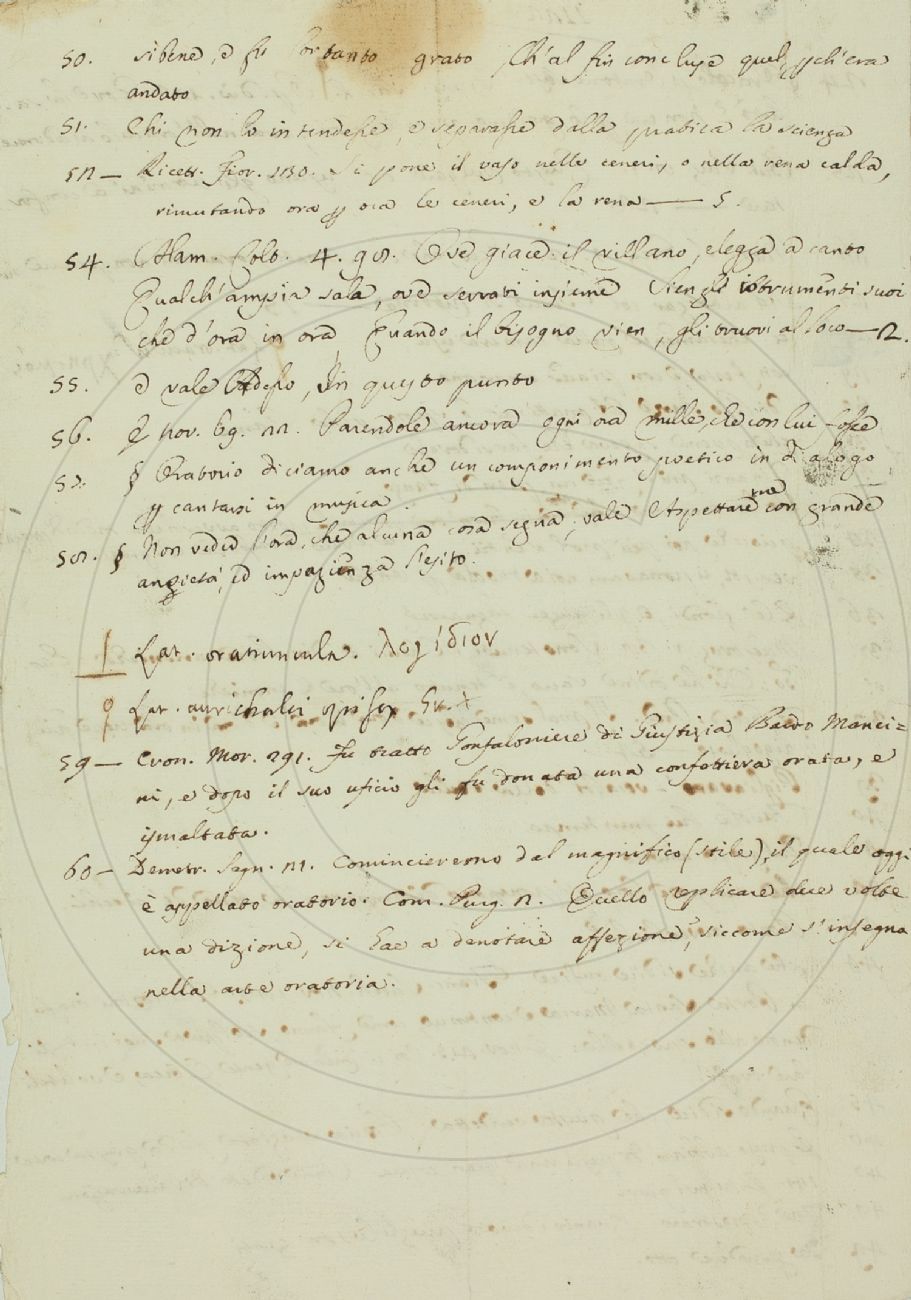 50. sì bene, e fu tortanto grato ch'al fin concluse quel, p ch'era
andato
51. Chi non lo intendesse, e separasse dalla pratica la scienza
52 — Ricett. Fior. 130. Si pone il vaso nelle ceneri, o nella rena calda,
rimutando ora p ora le ceneri, e la rena — 5.
54. Alam. Colt. 4. 98. Ove giace il villano, elegga a canto
Qualch'ampia sala, ove serrati insieme Sien gli istrumenti suoi
che d'ora in ora, Quando il bisogno vien, gli truovi al loco — 2.
55. e vale Adesso, In questo punto
56. E nov. 69. 12. Parendole ancora ogni ora mille, che con lui fosse
57. § Oratorio diciamo anche un componimento poetico in dialogo
p cantarsi in musica.
58. § Non vedere l'ora, che alcuna cosa segua, vale Aspettarne con grande
anzietà, ed impazienza l'esito.
1 Lat. oratiuncula. λογίδιον
9 Lat. aurichalci opifex Gr. +
59 — Cron. Mor. 291. Fu tratto Gonfaloniere di Giustizia Bardo Manci=
ni, e dopo il suo uficio gli fu donata una confettiera orata, e
ismaltata.
60 — Demetr. Segn. 11. Comincieremo dal magnifico (stile), il quale oggi
è appellato oratorio. Com. Purg. 2. Quello replicare due volte
una dizione, si hae a denotare affezione, siccome s'insegna
nella arte oratoria.